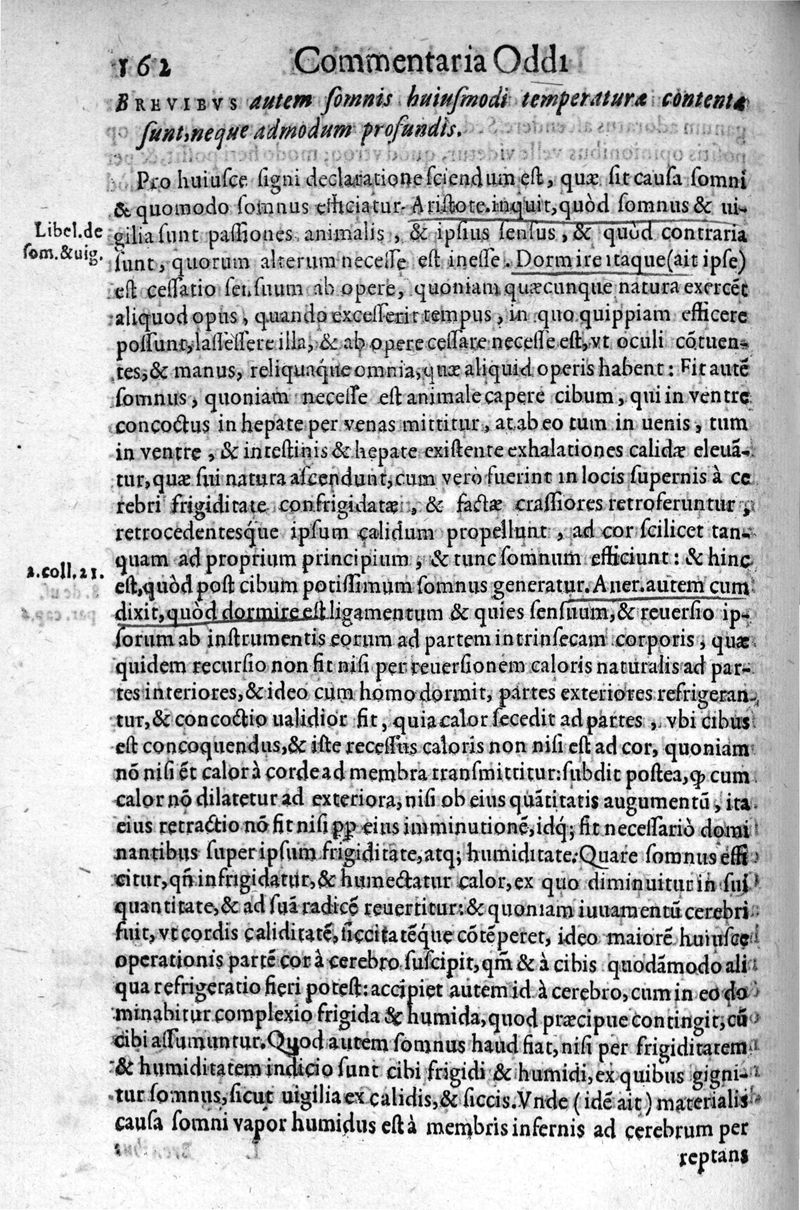 162 Commentaria Oddi
BREVIBVS autem somnis huiusmodi temperaturæ contentæ
sunt, neque admodum profundis.
Pro huiusce signi declaratione sciendum est, quæ sit causa somni
& quomodo somnus efficiatur. Aristote. inquit, quòd somnus & ui-
Libel. de
som. & uig.
gilia sunt passiones animalis, & ipsius sensus, & quòd contraria
sunt, quorum alterum necesse est inesse. Dormire itaque (ait ipse)
est cessatio sensuum ab opere, quoniam quæcunque natura exercēt
aliquod opus, quando excesserit tempus, in quo quippiam efficere
possunt, lassessere illa, & ab opere cessare necesse est, vt oculi cōtuen-
tes, & manus, reliquaque omnia, quæ aliquid operis habent: Fit autē
somnus, quoniam necesse est animale capere cibum, qui in ventre
concoctus in hepate per venas mittitur, at ab eo tum in uenis, tum
in ventre, & intestinis & hepate existente exhalationes calidæ eleuā-
tur, quæ sui natura ascendunt, cum verò fuerint in locis supernis à ce
rebri frigiditate confrigidatæ, & factæ crassiores retroferuntur,
retrocedentesq́ue ipsum calidum propellunt, ad cor scilicet tan-
quam ad proprium principium, & tunc somnum efficiunt: & hinc
2. coll. 21.
est, quòd post cibum potissimum somnus generatur. Auer. autem cum
dixit, quòd dormire est ligamentum & quies sensuum, & reuersio ip-
sorum ab instrumentis eorum ad partem intrinsecam corporis, quæ
quidem recursio non fit nisi per reuersionem caloris naturalis ad par-
tes interiores, & ideo cum homo dormit, partes exteriores refrigeran
tur, & concoctio ualidior fit, quia calor secedit ad partes, vbi cibus
est concoquendus, & iste recessus caloris non nisi est ad cor, quoniam
nō nisi ēt calor à corde ad membra transmittitur: subdit postea, ꝙ cum
calor nō dilatetur ad exteriora, nisi ob eius quātitatis augumentū, ita
eius retractio nō fit nisi ꝓp eius imminutionē, idq́; fit necessariò domi
nantibus super ipsum frigiditate, atq; humiditate: Quare somnus effi
citur, qñ infrigidatur, & humectatur calor, ex quo diminuitur in sui
quantitate, & ad suā radicē reuertitur: & quoniam iuuamentū cerebri
fuit, vt cordis caliditatē, siccitatēq́ue cōtēperet, ideo maiorē huiusce
operationis partē cor à cerebro suscipit, qm̄ & à cibis quodāmodo ali
qua refrigeratio fieri potest: accipiet autem id à cerebro, cum in eo do
minabitur complexio frigida & humida, quod præcipue contingit, cū
cibi assumuntur. Quod autem somnus haud fiat, nisi per frigiditatem
& humiditatem indicio sunt cibi frigidi & humidi, ex quibus gigni-
tur somnus, sicut uigilia ex calidis, & siccis. Vnde (idē ait) materialis
causa somni vapor humidus est à membris infernis ad cerebrum per
reptans